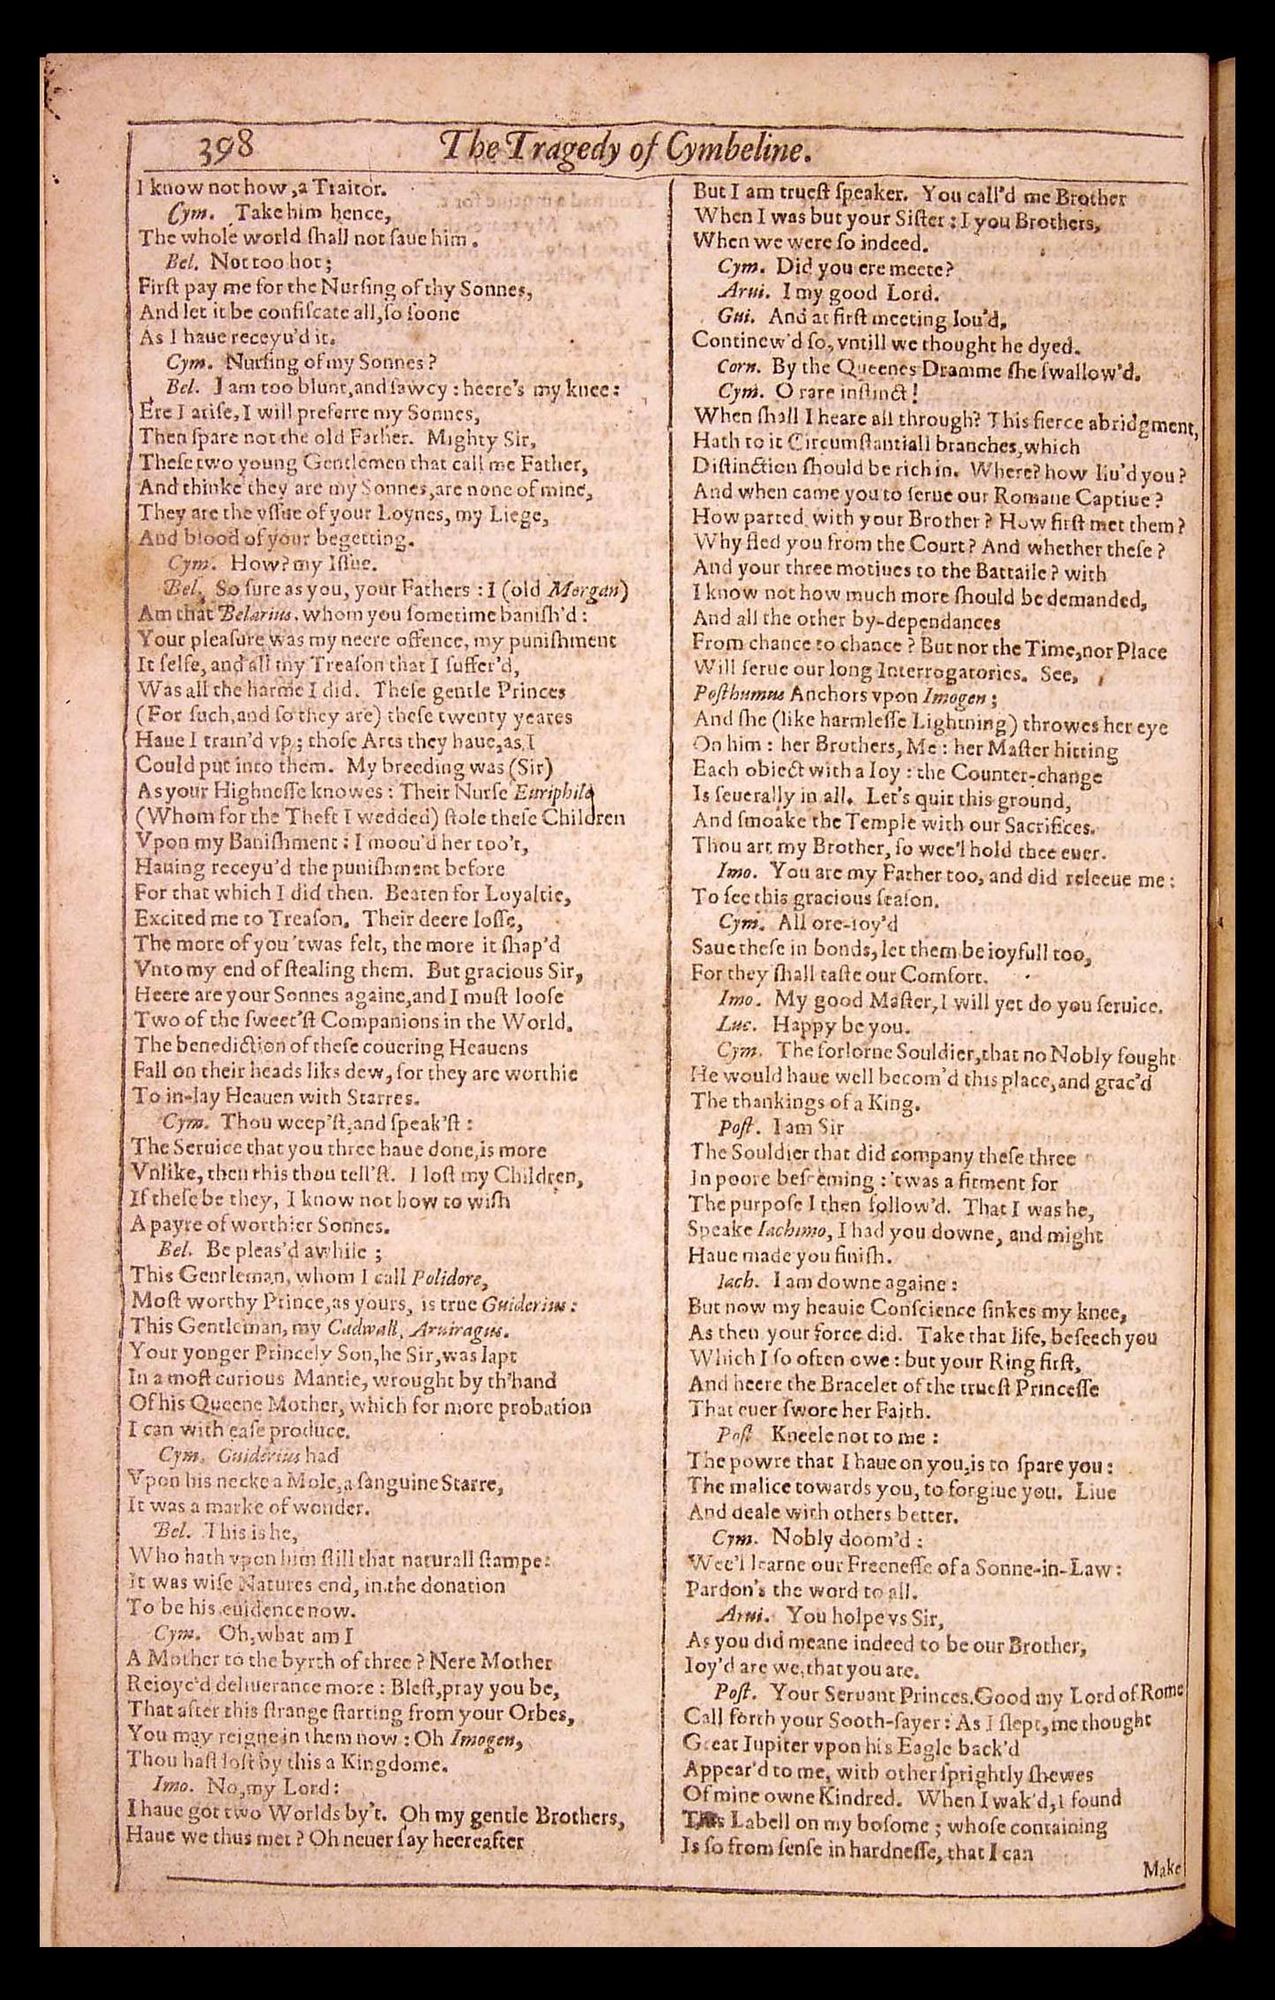 398 The Tragedy of Cymbeline.
I know not how, a Traitor.
Cym. Take him hence,
The whole world ſhall not ſaue him.
Bel. Not too hot;
Firſt pay me for the Nurſing of thy Sonnes,
And let it be confiſcate all, ſo ſoone
As I haue receyu'd it.
Cym. Nurſing of my Sonnes?
Bel. I am too blunt, and ſawcy: heere's my knee:
Ere I ariſe, I will preferre my Sonnes,
Then ſpare not the old Father. Mighty Sir,
Theſe two young Gentlemen that call me Father,
And thinke they are my Sonnes, are none of mine,
They are the yſſue of your Loynes, my Liege,
And blood of your begetting.
Cym. How? my Iſſue.
Bel. So ſure as you, your Fathers: I (old Morgan)
Am that Belarius, whom you ſometime baniſh'd:
Your pleaſure was my neere offence, my puniſhment
It ſelfe, and all my Treaſon that I ſuffer'd,
Was all the harme I did. Theſe gentle Princes
(For ſuch, and ſo they are) theſe twenty yeares
Haue I train'd vp; thoſe Arts they haue, as I
Could put into them. My breeding was (Sir)
As your Highneſſe knowes: Their Nurſe Euriphile
(Whom for the Theft I wedded) ſtole theſe Children
Vpon my Baniſhment: I moou'd her too't,
Hauing receyu'd the puniſhment before
For that which I did then. Beaten for Loyaltie,
Excited me to Treaſon. Their deere loſſe,
The more of you 'twas felt, the more it ſhap'd
Vnto my end of ſtealing them. But gracious Sir,
Heere are your Sonnes againe, and I muſt looſe
Two of the ſweet'ſt Companions in the World.
The benediction of theſe couering Heauens
Fall on their heads liks dew, for they are worthie
To in-lay Heauen with Starres.
Cym. Thou weep'ſt, and ſpeak'ſt:
The Seruice that you three haue done, is more
Vnlike, then this thou tell'ſt. I loſt my Children,
If theſe be they, I know not how to wiſh
A payre of worthier Sonnes.
Bel. Be pleas'd awhile;
This Gentleman, whom I call Polidore,
Moſt worthy Prince, as yours, is true Guiderius:
This Gentleman, my Cadwall, Aruiragus.
Your yonger Princely Son, he Sir, was lapt
In a moſt curious Mantle, wrought by th'hand
Of his Queene Mother, which for more probation
I can with eaſe produce.
Cym. Guiderius had
Vpon his necke a Mole, a ſanguine Starre,
It was a marke of wonder.
Bel. This is he,
Who hath vpon him ſtill that naturall ſtampe:
It was wiſe Natures end, in the donation
To be his euidence now.
Cym. Oh, what am I
A Mother to the byrth of three? Nere Mother
Reioyc'd deliuerance more: Bleſt, pray you be,
That after this ſtrange ſtarting from your Orbes,
You may reigne in them now: Oh Imogen,
Thou haſt loſt by this a Kingdome.
Imo. No, my Lord:
I haue got two Worlds by't. Oh my gentle Brothers,
Haue we thus met? Oh neuer ſay heereafter
But I am trueſt ſpeaker. You call'd me Brother
When I was but your Siſter: I you Brothers,
When we were ſo indeed.
Cym. Did you ere meete?
Arui. I my good Lord.
Gui. And at firſt meeting lou'd,
Continew'd ſo, vntill we thought he dyed.
Corn. By the Queenes Dramme ſhe ſwallow'd.
Cym. O rare inſtinct!
When ſhall I heare all through? This fierce abridgment,
Hath to it Circumſtantiall branches, which
Diſtinction ſhould be rich in. Where? how liu'd you?
And when came you to ſerue our Romane Captiue?
How parted with your Brother? How firſt met them?
Why fled you from the Court? And whether theſe?
And your three motiues to the Battaile? with
I know not how much more ſhould be demanded,
And all the other by-dependances
From chance to chance? But nor the Time, nor Place
Will ſerue our long Interrogatories. See,
Poſthumus Anchors vpon Imogen;
And ſhe (like harmleſſe Lightning) throwes her eye
On him: her Brothers, Me: her Maſter hitting
Each obiect with a Ioy: the Counter-change
Is ſeuerally in all. Let's quit this ground,
And ſmoake the Temple with our Sacrifices.
Thou art my Brother, ſo wee'l hold thee euer.
Imo. You are my Father too, and did releeue me:
To ſee this gracious ſeaſon.
Cym. All ore-ioy'd
Saue theſe in bonds, let them be ioyfull too,
For they ſhall taſte our Comfort.
Imo. My good Maſter, I will yet do you ſeruice.
Luc. Happy be you.
Cym. The forlorne Souldier, that no Nobly fought
He would haue well becom'd this place, and grac'd
The thankings of a King.
Poſt. I am Sir
The Souldier that did company theſe three
In poore beſeeming: 'twas a fitment for
The purpoſe I then follow'd. That I was he,
Speake Iachimo, I had you downe, and might
Haue made you finiſh.
Iach. I am downe againe:
But now my heauie Conſcience ſinkes my knee,
As then your force did. Take that life, beſeech you
Which I ſo often owe: but your Ring firſt,
And heere the Bracelet of the trueſt Princeſſe
That euer ſwore her Faith.
Poſt. Kneele not to me:
The powre that I haue on you, is to ſpare you:
The malice towards you, to forgiue you. Liue
And deale with others better.
Cym. Nobly doom'd:
Wee'l learne our Freeneſſe of a Sonne-in-Law:
Pardon's the word to all.
Arui. You holpe vs Sir,
As you did meane indeed to be our Brother,
Ioy'd are we, that you are.
Poſt. Your Seruant Princes. Good my Lord of Rome
Call forth your Sooth-ſayer: As I ſlept, me thought
Great Iupiter vpon his Eagle back'd
Appear'd to me, with other ſprightly ſhewes
Of mine owne Kindred. When I wak'd, I found
This Labell on my boſome; whoſe containing
Is ſo from ſenſe in hardneſſe, that I can
Make